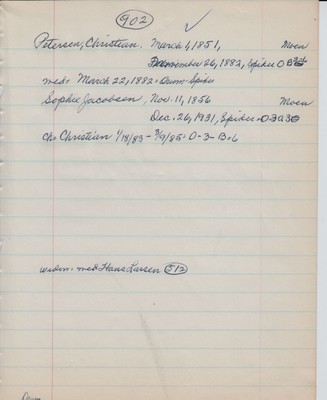 902 ✓
Petersen, Christian. March 4, 1851, Moen
November 26, 1882, Spiker O B
med= March 22, 1882= Oeum-Spiker
Sophie Jacobsen, Nov. 11, 1856 Moen
Dec. 26, 1931, Spiker=
ch= Christian 1/18/83-3/9/85= O-3-B=6
widow= med Hans Larsen 512